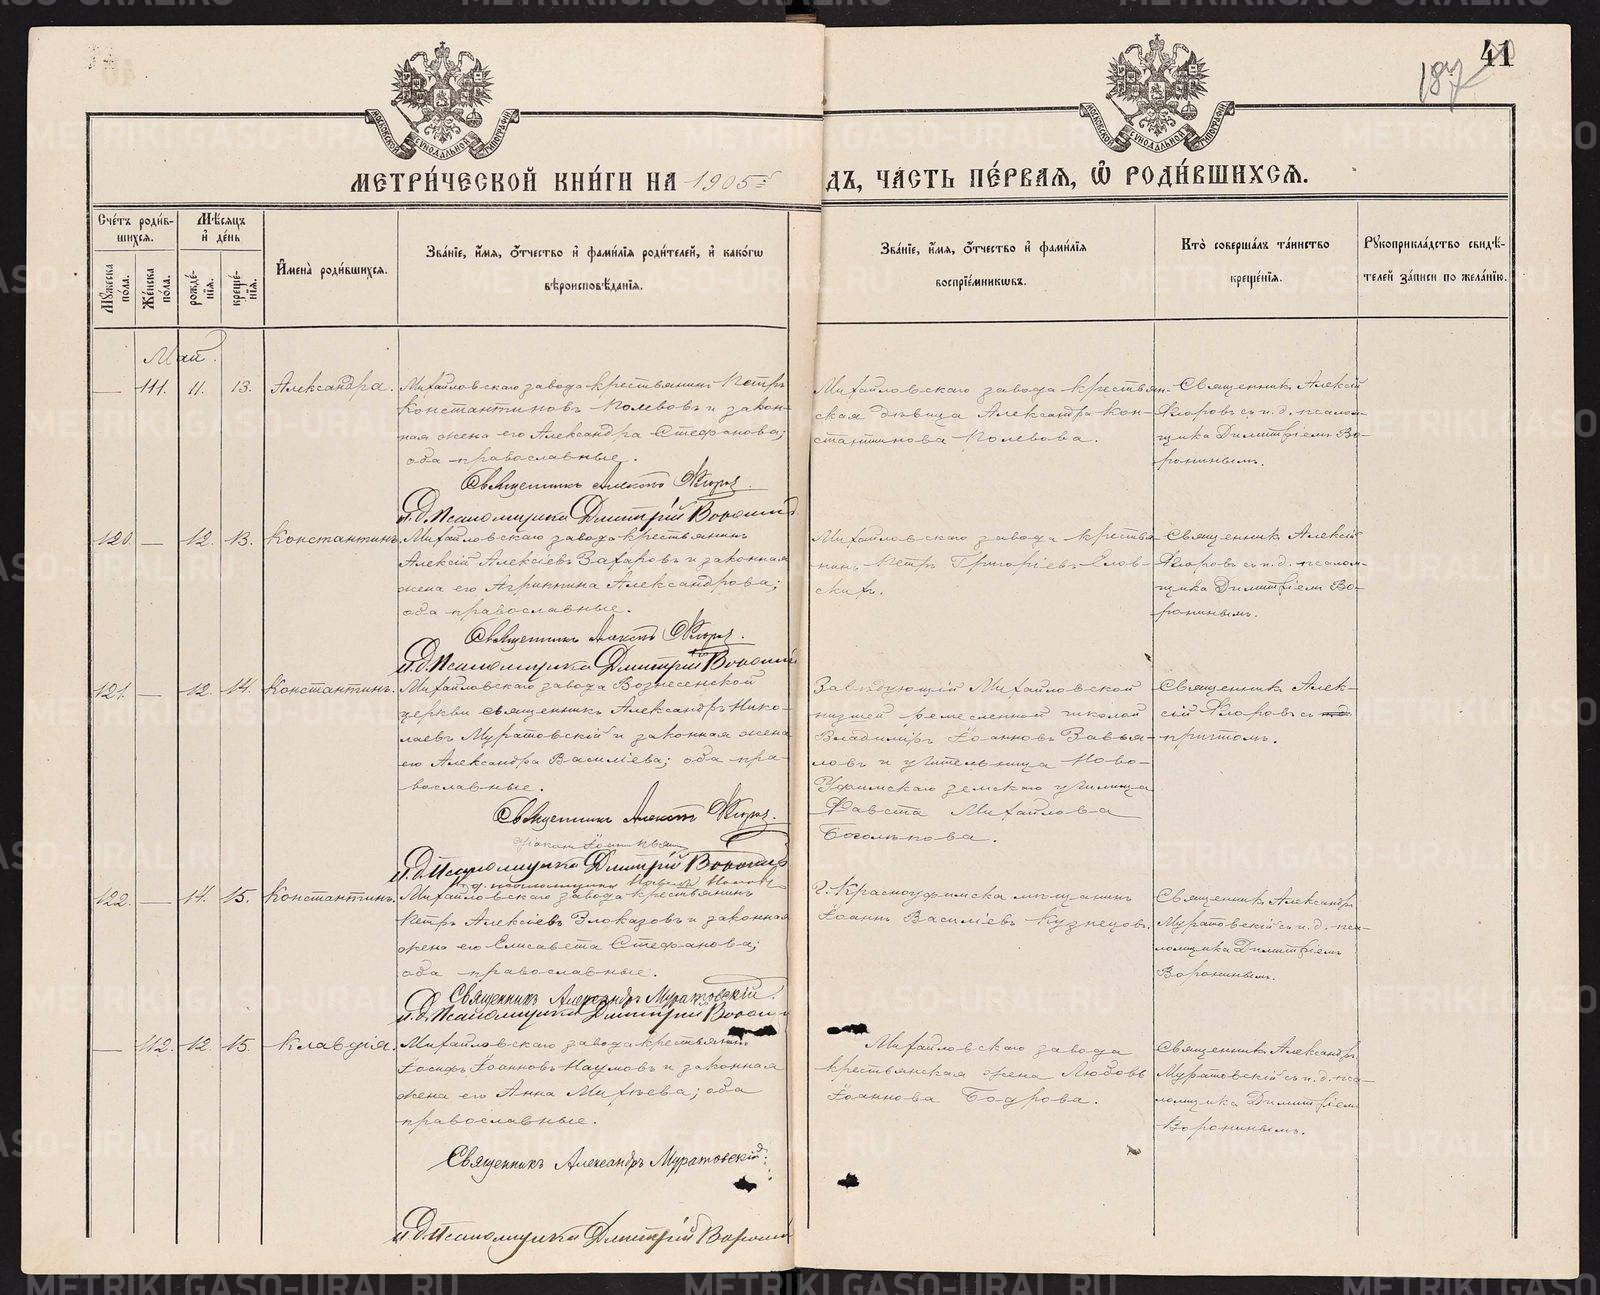 41
187
МЕТРИ́ЧЕСКОЙ КНИ́ГИ НА 1905 ДЪ, ЧА́СТЬ ПЕ́РВАЯ, Ѡ РОДИ́ВШИХСЯ.
Сче́тъ роди́в-
шихся.
Му́жеска по́ла.
Же́нска по́ла.
Мѣ́сяцъ
и де́нь
рожде́-
нїя.
креще́-
нїя.
И҆мена̀ роди́вшихся.
Зва́нїе, и҆́мя, ѻ҆́тчество и҆ фами́лїя роди́телей, и҆ како́гѡ
вѣроисповѣ́данїя.
Зва́нїе, и҆́мя, ѻ҆́тчество и҆ фами́лїя
воспрїе́мникѡвъ.
Кто̀ соверша́лъ та́инство
креще́нїя.
Рꙋкоприкла́дство свидѣ́-
телей за́писи по жела́нїю.
Май.
— 111. 11. 13. Александра.
Михайловскаго завода крестьянинъ Петръ
Константиновъ Полевовъ и закон-
ная жена его Александра Стефанова;
оба православные.
Священникъ Алексѣй Флоровъ
И.д. Псаломщика Димитрій Воронинъ
Михайловскаго завода крестьян-
ская дѣвица Александра Кон-
стантинова Полевова.
Священникъ Алексій
Флоровъ съ и. д. псалом-
щика Димитріемъ Во-
ронинымъ.
120. — 12. 13. Константинъ.
Михайловскаго завода крестьянинъ
Алексій Алексіевъ Захаровъ и законная
жена его Агриппина Александрова;
оба православные.
Священникъ Алексѣй Флоровъ.
И.д. Псаломщика Димитрій Воронинъ
Михайловскаго завода крестья-
нинъ Петръ Григоріевъ Елов-
скихъ.
Священникъ Алексій
Флоровъ съ и. д. псалом-
щика Димитріемъ Во-
ронинымъ.
121. — 12. 14. Константинъ.
Михайловскаго завода Вознесенской
церкви священникъ Александръ Нико-
лаевъ Муратовскій и законная жена
его Александра Василіева; оба пра-
вославные.
Священникъ Алексѣй Флоровъ.
И.д. Псаломщика Димитрій Воронинъ
Завѣдующій Михайловской
низшей ремесленной школой
Владиміръ Іоанновъ Завья-
ловъ и учительница Ново-
Уфимскаго земскаго училища
Фавста Михайлова
Священникъ Алек-
сій Флоровъ съ
причтомъ.
122. — 14. 15. Константинъ.
Михайловскаго завода крестьянинъ
Петръ Алексіевъ Злоказовъ и законная
жена его Елисавета Стефанова;
оба православные.
Священникъ Александръ Муратовскій.
И.д. Псаломщика Димитрій Воронинъ
г. Красноуфимска мѣщанинъ
Іоаннъ Василіевъ Кузнецовъ.
Священникъ Александръ
Муратовскій съ и. д. пса-
ломщика Димитріемъ
Воронинымъ.
— 112. 12 15. Клавдія.
Михайловскаго завода крестьянинъ
Іосифъ Іоанновъ Наумовъ и законная
жена его Анна Михѣева; оба
православные.
Священникъ Александръ Муратовскій
И.д. Псаломщика Димитрій Воронинъ
Михайловскаго завода
крестьянская жена Любовь
Іоаннова Бодрова.
Священникъ Александръ
Муратовскій съ и. д. пса-
ломщика Димитріемъ
Воронинымъ.
METRIKI.GASO-URAL.RU